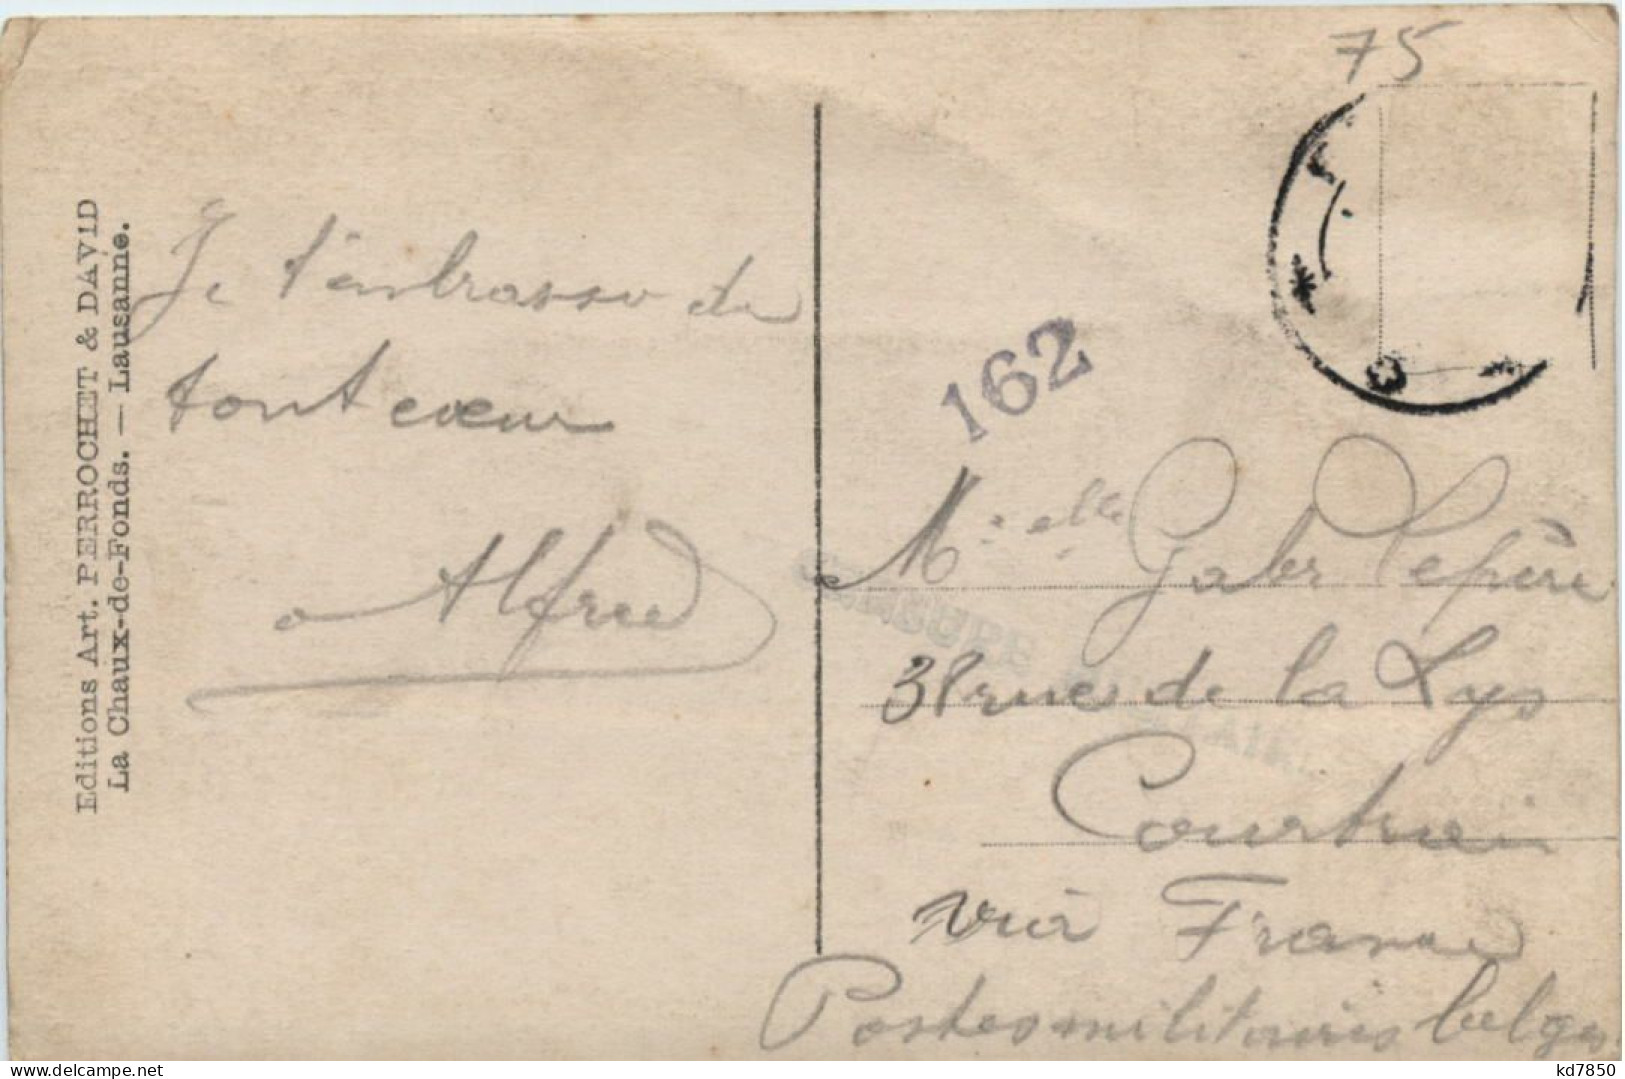 75
Editions Art. PERROCHET & DAVID
La Chaux-de-Fonds. — Lausanne.
Je t'embrasse de
tout cœur
Alfred
162
CENSURE MILITAIRE
Melle Gabr Lepère
31 rue de la Lys
Courtrai
via France
Postes militaires belges
kd7850